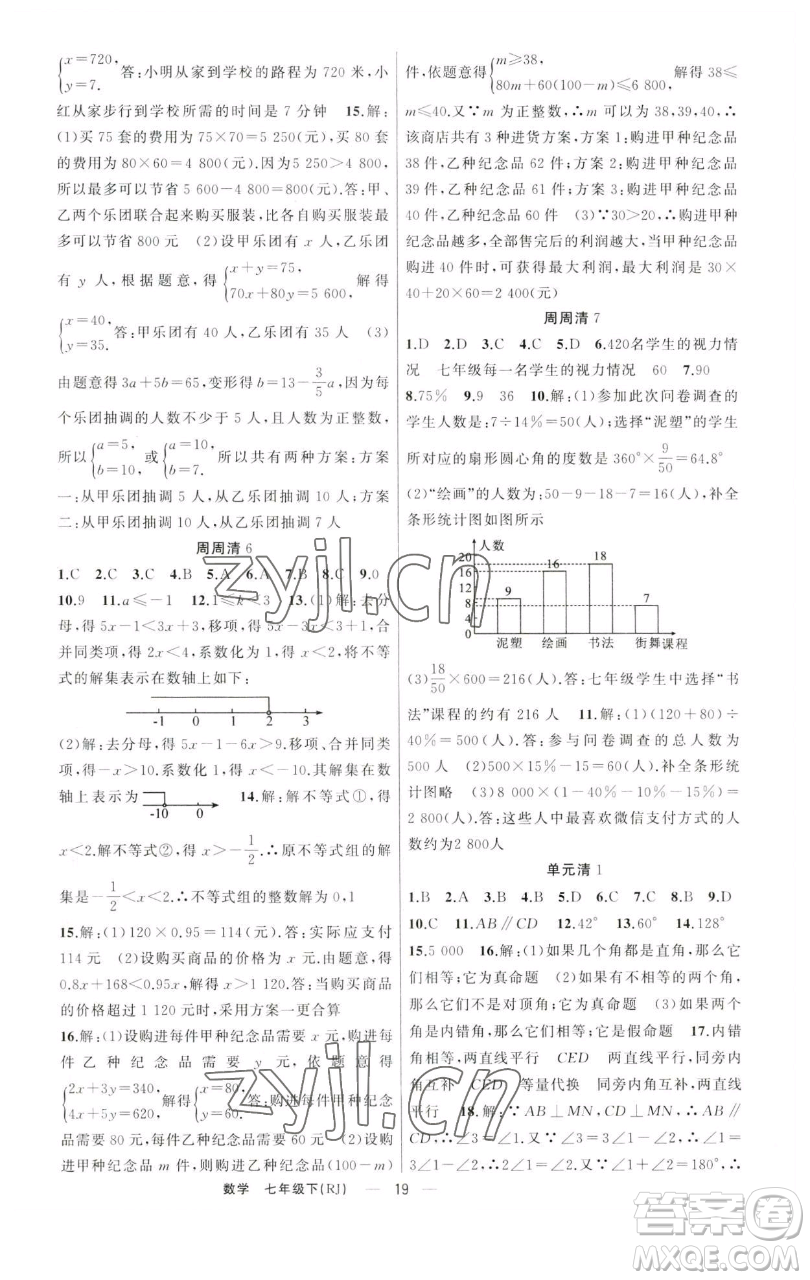 {x=720, y=7. 答:小明从家到学校的路程为 720 米,小
红从家步行到学校所需的时间是 7 分钟 15.解:
(1)买 75 套的费用为 75×70=5 250(元),买 80
套的费用为 80×60=4 800(元).因为 5 250>4 800,
所以最多可以节省 5 600-4 800=800(元).答:甲、
乙两个乐团联合起来购买服装,比各自购买服装
最多可以节省 800 元 (2)设甲乐团有 x 人,乙乐团
有 y 人,根据题意,得 {x+y=75, 70x+80y=5 600, 解得
{x=40, y=35. 答:甲乐团有 40 人,乙乐团有 35 人 (3)
由题意得 3a+5b=65,变形得 b=13-3/5a,因为每
个乐团抽调的人数不少于 5 人,且人数为正整数,
所以 {a=5, b=10, 或 {a=10, b=7. 所以共有两种方案:方案
一:从甲乐团抽调 5 人,从乙乐团抽调 10 人;方案
二:从甲乐团抽调 10 人,从乙乐团抽调 7 人
周周清 6
1.C 2.C 3.C 4.B 5.A 6.A 7.B 8.C 9.0
10.9 11.a≤-1 12.1≤k<3 13.(1)解:去分
母,得 5x-1<3x+3,移项,得 5x-3x<3+1,合
并同类项,得 2x<4,系数化为 1,得 x<2,将不等
式的解集表示在数轴上如下:
-1 0 1 2 3
(2)解:去分母,得 5x-1-6x>9,移项、合并同类
项,得-x>10.系数化 1,得 x<-10,其解集在数
轴上表示为 -10 0 14.解:解不等式①,得
x<2.解不等式②,得 x>-1/2.∴原不等式组的解
集是-1/2<x<2.∴不等式组的整数解为 0,1
15.解:(1)120×0.95=114(元).答:实际应支付
114 元 (2)设购买商品的价格为 x 元,由题意得
0.8x+168<0.95x,解得 x>1 120.答:当购买商品
的价格超过 1 120 元时,采用方案一更合算
16.解:(1)设购进每件甲种纪念品需要 x 元,购进每
件乙种纪念品需要 y 元,依题意得
{2x+3y=340, 4x+5y=620, 解得 {x=80, y=60. 答:购进每件甲种纪念
品需要 80 元,每件乙种纪念品需要 60 元 (2)设购
进甲种纪念品 m 件,则购进乙种纪念品(100-m)
件,依题意得 {m≥38, 80m+60(100-m)≤6 800, 解得 38≤
m≤40.又∵m 为正整数,∴m 可以为 38,39,40,∴
该商店共有 3 种进货方案:方案 1:购进甲种纪念品
38 件,乙种纪念品 62 件;方案 2:购进甲种纪念品
39 件,乙种纪念品 61 件;方案 3:购进甲种纪念品
40 件,乙种纪念品 60 件 (3)∵30>20,∴购进甲种
纪念品越多,全部售完后的利润越大,当甲种纪念品
购进 40 件时,可获得最大利润,最大利润是 30×
40+20×60=2 400(元)
周周清 7
1.D 2.D 3.C 4.C 5.D 6.420名学生的视力情
况 七年级每一名学生的视力情况 60 7.90
8.75% 9.9 36 10.解:(1)参加此次问卷调查的
学生人数是:7÷14%=50(人);选择“泥塑”的学生
所对应的扇形圆心角的度数是 360°×9/50=64.8°
(2)“绘画”的人数为:50-9-18-7=16(人),补全
条形统计图如图所示
人数
20
16
12
8
4
0
9 16 18 7
泥塑 绘画 书法 街舞 课程
(3)18/50×600=216(人).答:七年级学生中选择“书
法”课程的约有 216 人 11.解:(1)(120+80)÷
40%=500(人).答:参与问卷调查的总人数为
500 人 (2)500×15%-15=60(人).补全条形统
计图略 (3)8 000×(1-40%-10%-15%)=
2 800(人).答:这些人中最喜欢微信支付方式的人
数约为2 800人
单元清 1
1.B 2.A 3.A 4.C 5.D 6.C 7.C 8.B 9.D
10.C 11.AB∥CD 12.42° 13.60° 14.128°
15.5 000 16.解:(1)如果几个角都是直角,那么它
们相等;它为真命题 (2)如果两个角是相等的两个角,
那么它们不互为对顶角;它为假命题 (3)如果两
个角是内错角,那么它们相等;它是假命题 17.内错
角相等,两直线平行 CED 两直线平行,同旁内
角互补 CED 等量代换 同旁内角互补,两直线
平行 18.解:∵AB⊥MN,CD⊥MN,∴AB∥
CD,∴∠1=∠3.∵∠3=∠2,∴∠1=∠2.∵
3∠1-∠2=180°,∴3∠1-∠1=2∠1=180°,∴
数学 七年级下(RJ) — 19 —
zyjl.cn
zyjl.cn
答案卷
MXQE.COM